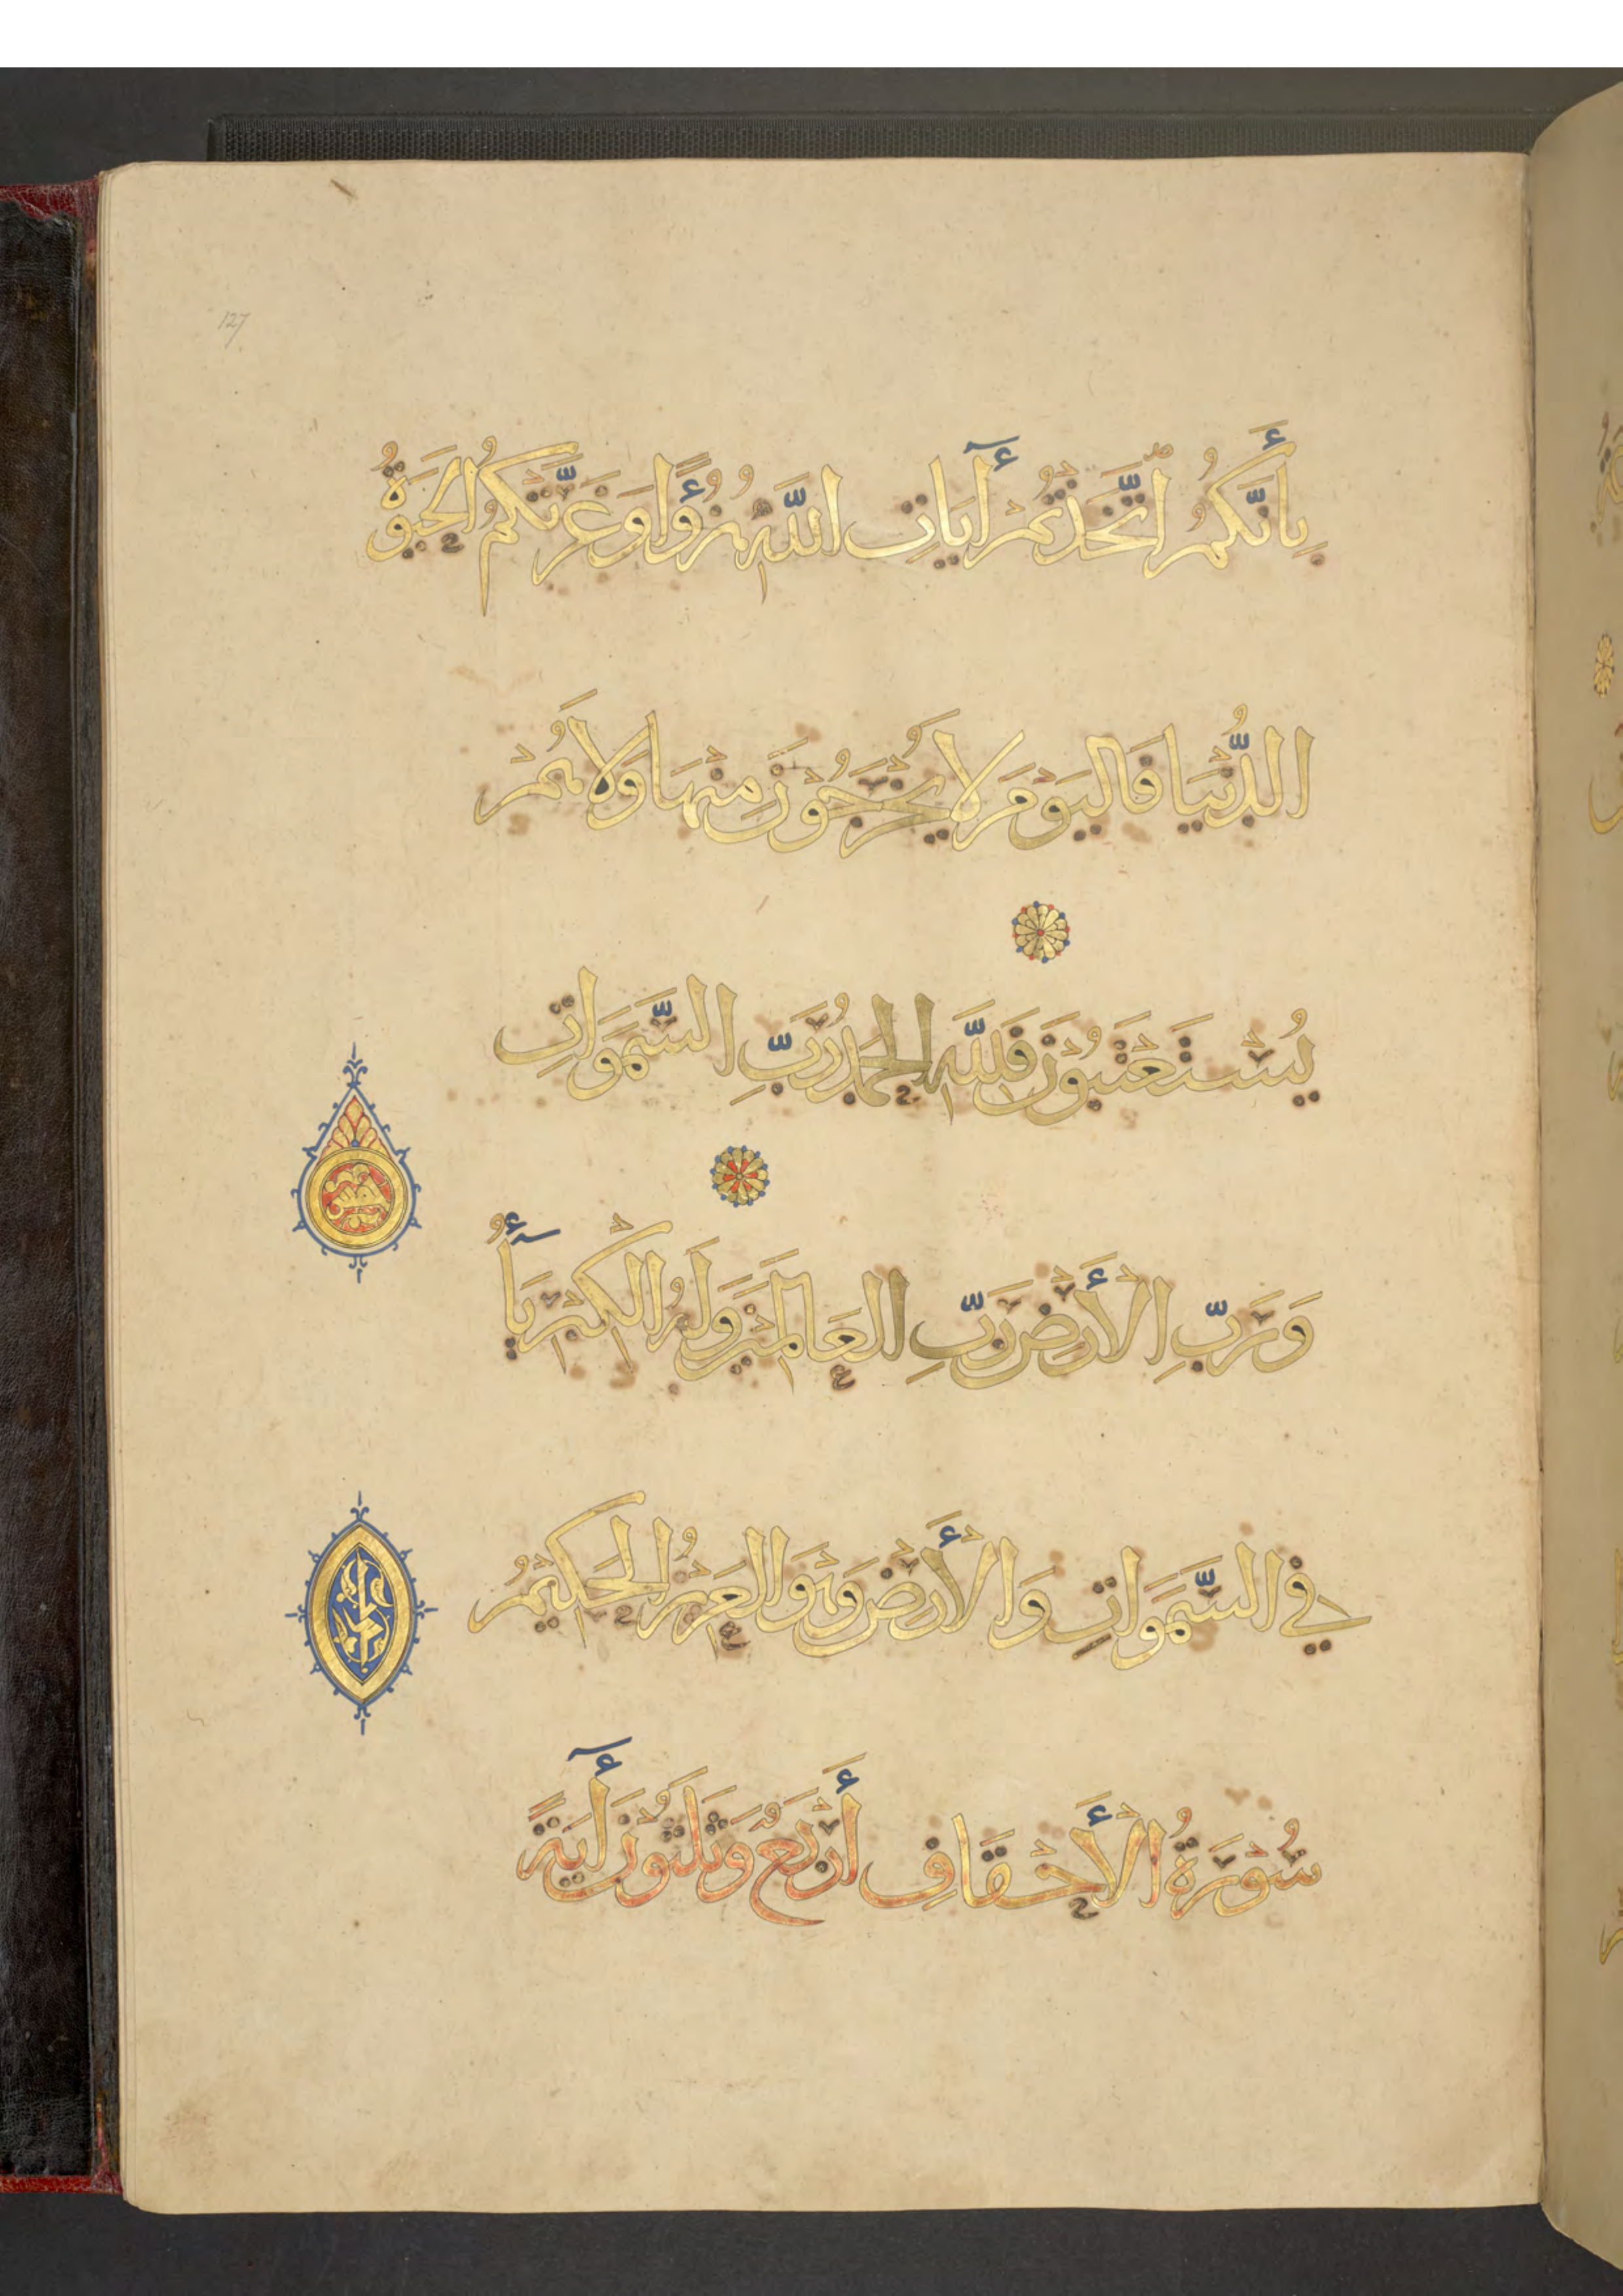 127
بِأَنَّكُمُ اتَّخَذْتُمْ آيَاتِ اللَّهِ هُزُؤًا وَغَرَّتْكُمُ الْحَيَوةُ
الدُّنْيَا فَالْيَوْمَ لَا يُخْرَجُوْنَ مِنْهَا وَلَا هُمْ
يُسْتَعْتَبُوْنَ فَلِلَّهِ الْحَمْدُ رَبِّ السَّمَوَاتِ
وَرَبِّ الْأَرْضِ رَبِّ الْعَالَمِيْنَ وَلَهُ الْكِبْرِيَآءُ
فِي السَّمَوَاتِ وَالْأَرْضِ وَهُوَ الْعَزِيْزُ الْحَكِيْمُ
سُوْرَةُ الْأَحْقَافِ أَرْبَعٌ وَثَلَثُوْنَ آيَةً